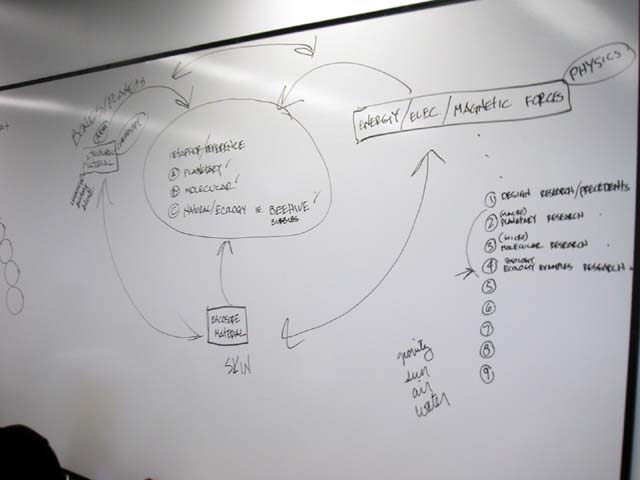 PHYSICS
ENERGY/ELEC/MAGNETIC FORCES
BONES/PLANETS
MATERIAL
METAPHOR/REFERENCE
Ⓐ PLANETARY
Ⓑ MOLECULAR
Ⓒ NATURAL/ECOLOGY IE. BEEHIVE
BUBBLES
ENCLOSURE
MATERIAL
SKIN
① DESIGN RESEARCH/PRECEDENTS
(MACRO)
② PLANETARY RESEARCH
(MICRO)
③ MOLECULAR RESEARCH
BIOLOGY
④ ECOLOGY EXAMPLES RESEARCH
⑤
⑥
⑦
⑧
⑨
gravity
sun
air
water